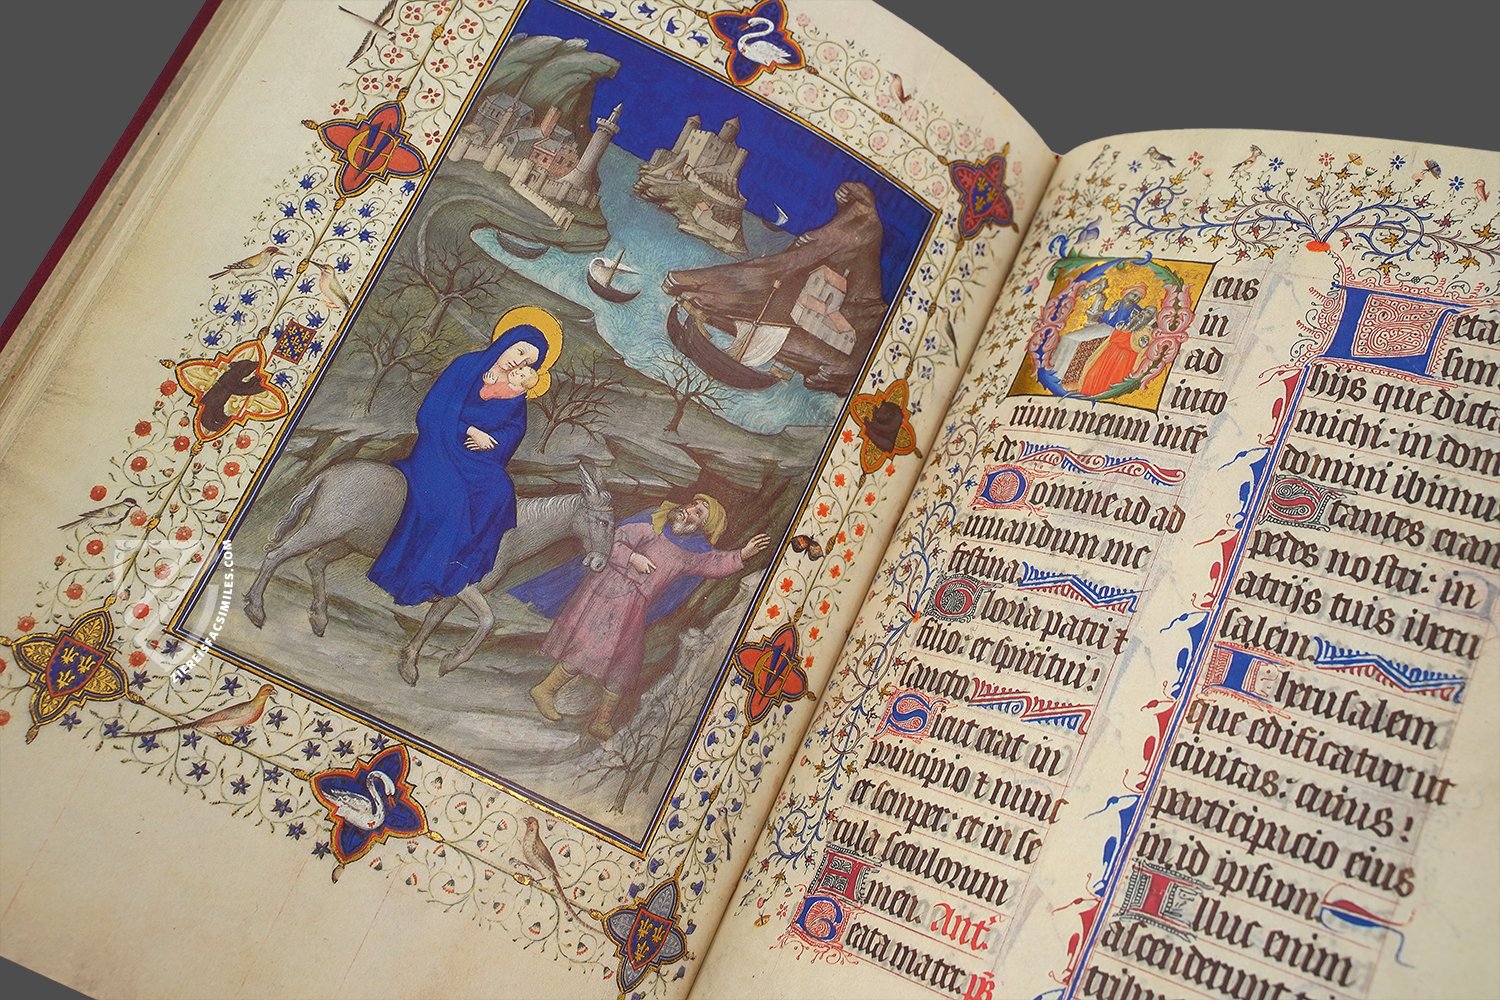 Deus
in
ad
iuto
rium meum intē
de
Domine ad ad
iuuandum me
festina
Gloria patri ⁊
filio: et spiritui!
sancto
Sicut erat in
principio ⁊ nunc
et semper: et in se
cula seculorum
Amen. Ant.
Beata mater. ps
Leta
sum
hijs que dicta
michi: in dom
domini ibimus
Stantes eran
pedes nostri: in
atrijs tuis iheru
salem
Iherusalem
que edificatur ut
ciuitas: cuius!
participacio eius
in id ipsum
Illuc enim
ascenderunt
ZIEREISFACSIMILES.COM